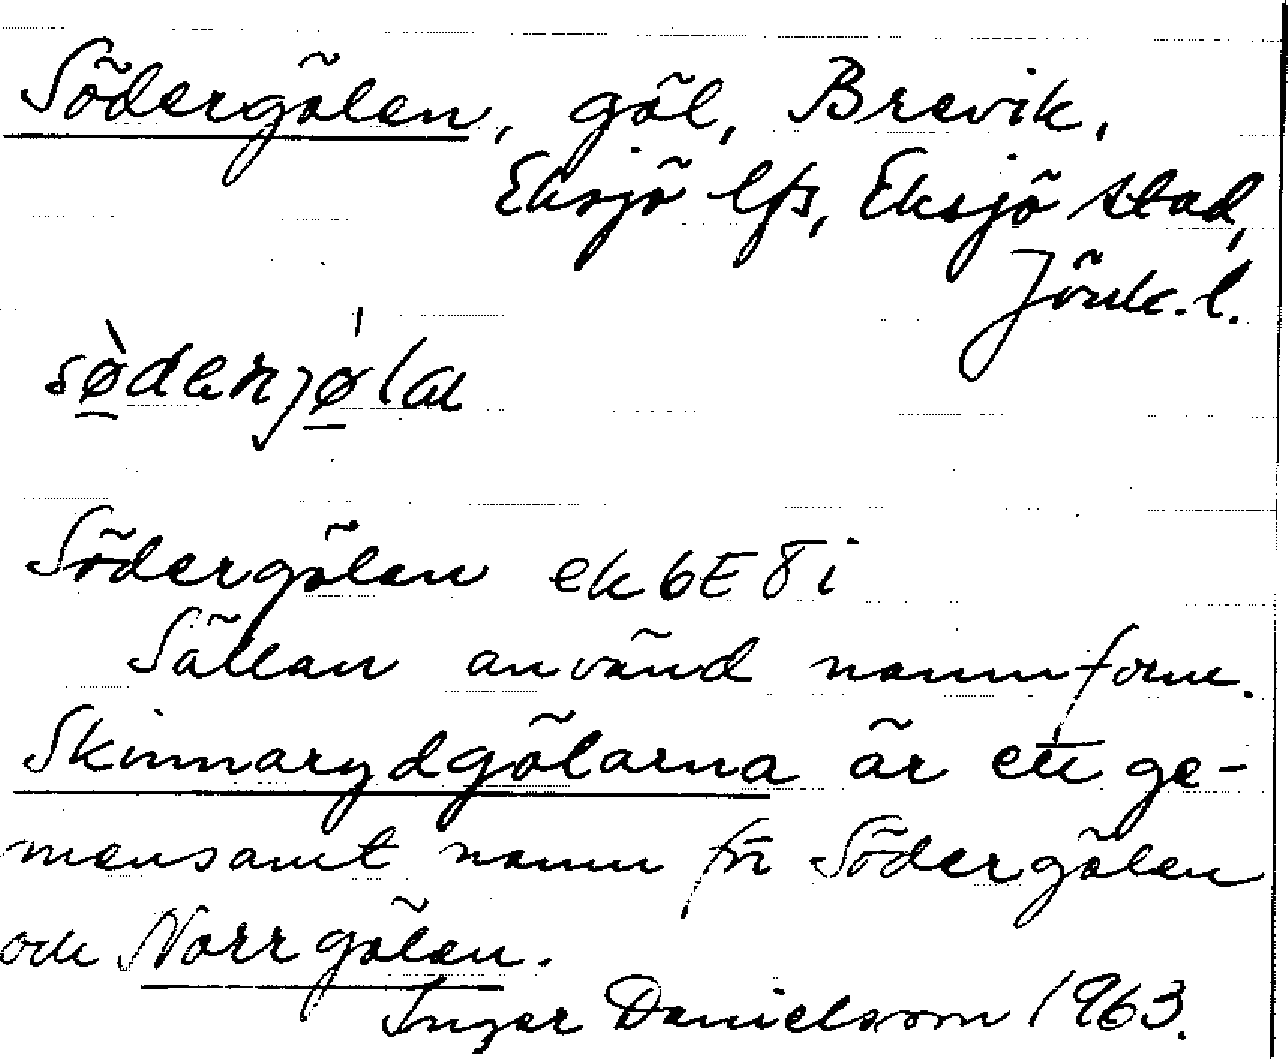 Södergölen, göl, Brevik,
Eksjö lfs, Eksjö stad,
Jönk. l.
Södergölen ek 6E 8i
Sällan använd namnform.
Skinnarydgölarna är ett ge-
mensamt namn för Södergölen
och Norrgölen.
Inger Danielsson 1963.